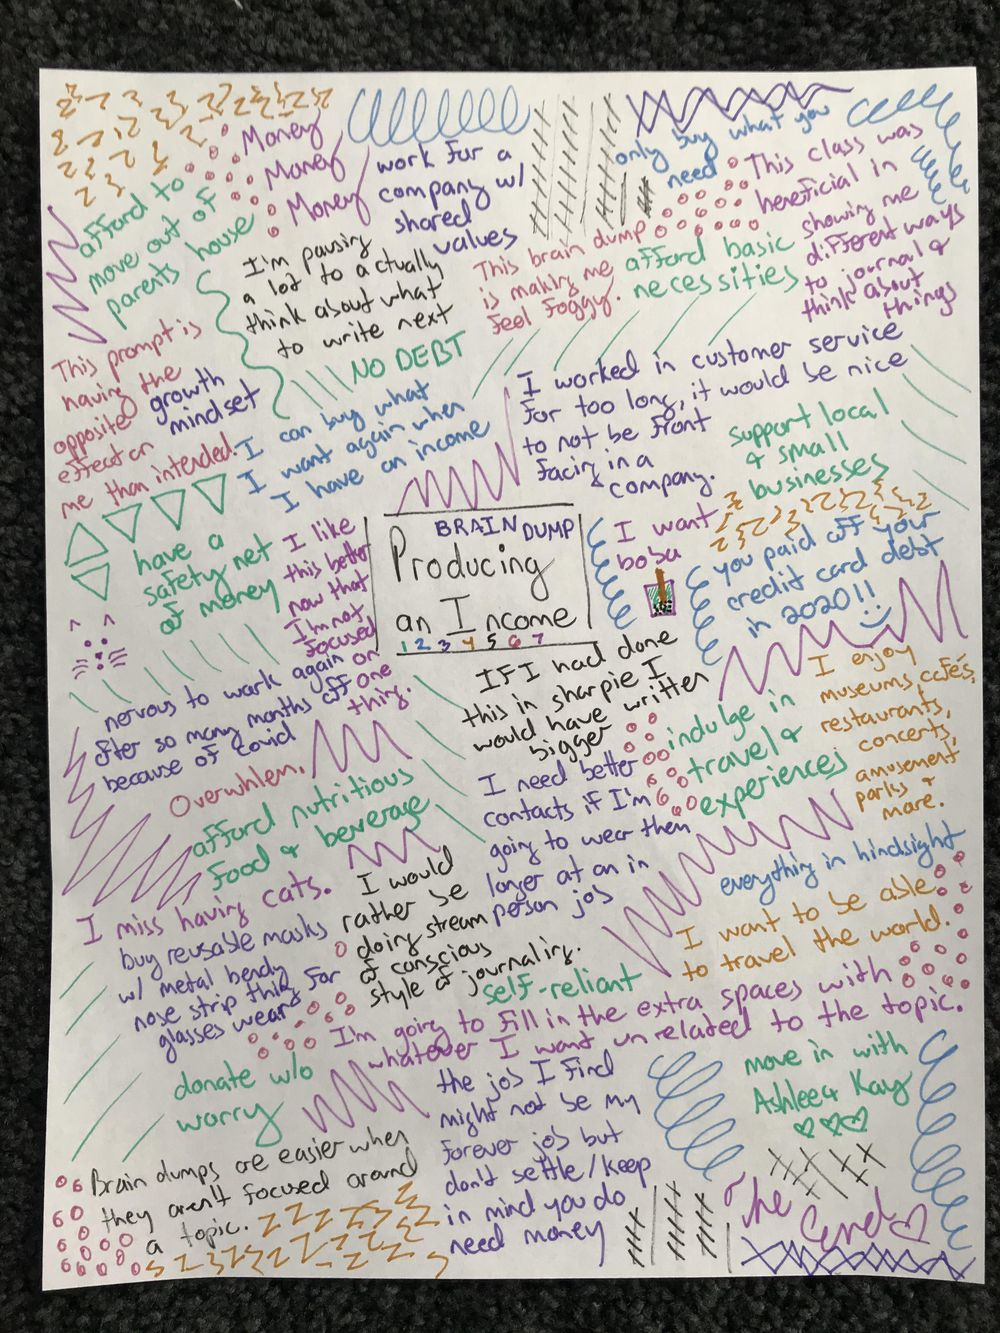 Money
Money
Money
afford to
move out of
parents house
work for a
company w/
shared
values
only buy what you
need
This class was
beneficial in
showing me
different ways
to journal &
think about
things
I'm pausing
a lot to actually
think about what
to write next
This brain dump
is making me
feel foggy.
afford basic
necessities
This prompt is
having the
opposite growth
effect on mindset
me than intended.
NO DEBT
I can buy what
I want again when
I have an income
I worked in customer service
for too long, it would be nice
to not be front
facing in a
company.
support local
& small
businesses
have a
safety net
of money
I like
this better
now that
I'm not
focused
on one
thing.
BRAIN DUMP
Producing
an Income
1 2 3 4 5 6 7
I want
boba
you paid off your
credit card debt
in 2020!!
nervous to work again
after so many months off
because of covid
IF I had done
this in sharpie I
would have written
bigger
I enjoy
museums, cafés,
restaurants,
concerts,
amusement
parks &
more.
indulge in
travel &
experiences
Overwhlem.
afford nutritious
food & beverage
I need better
contacts if I'm
going to wear them
longer at an in
person job
I miss having cats.
I would
rather be
doing stream
of conscious
style of journaling.
everything in hindsight
I want to be able
to travel the world.
buy reusable masks
w/ metal bendy
nose strip thing for
glasses wear
self-reliant
I'm going to fill in the extra spaces with
whatever I want unrelated to the topic.
donate w/o
worry
the job I find
might not be my
forever job but
don't settle/keep
in mind you do
need money
move in with
Ashlee & Kay
Brain dumps are easier when
they aren't focused around
a topic.
The
end